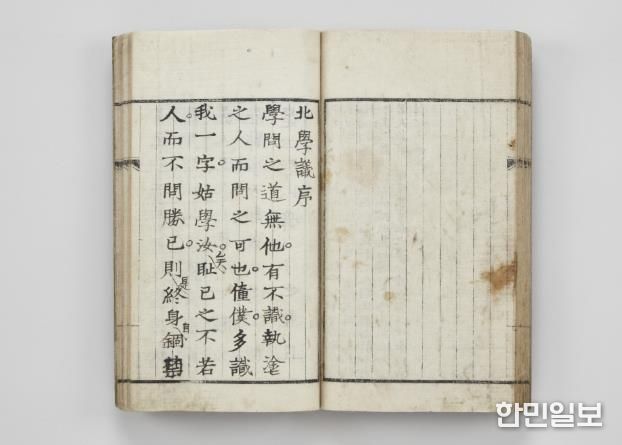 北學議序
學問之道無他。有不識。執塗
之人而問之可也。僮僕。多識
我一字。姑學汝。矣恥己之不若
人。而不問勝己。則是終身自錮
한민일보